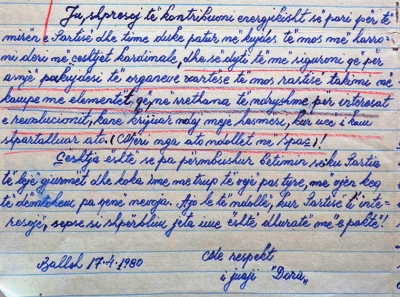 Ju, shpresoj të kontribuoni energjikisht së pari për të
mirën e Partisë dhe time duke patur me kujdes të mos më harro-
ni deri në çështjet kardinale, dhe së dyti të më siguroni që për
asnjë pakujdesi të organeve vartëse të mos rastisë takimi në
kampe me elementët që, në rrethana të ndryshme për interesat
e revolucionit, kanë krijuar ndaj meje hasmëri, kur unë i kam
shpartalluar ato. (Njëri nga ato ndollet në Spaç)!
Çështja është se pa përmbushur betimin se ku Partia
të lejë gjurmët dhe koka ime me trup të vejë pas tyre, më vjen keq
të dëmtohem pa qenë nevoja. Ajo le të ndollë, kur Partisë t'i inte-
resojë, sepse si shpërblim jeta ime është dhuratë më e paktë!
Ballsh 17.4.1980
Me respekt
i juaji "Doru"